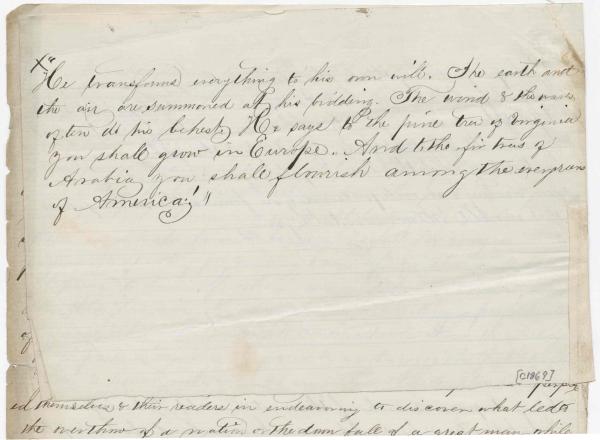 X "He transforms everything to his own will. The earth and
the air are summoned at his bidding. The wind & the waves
often do his behests. He says to the pine tree of Virginia
you shall grow in Europe. And to the fir trees of
Arabia you shall flourish among the evergreens
of America!"
[c1869]
perpl
ed themselves & their readers in endeavoring to discover what led to
the overthrow of a nation or the down fall of a great man while